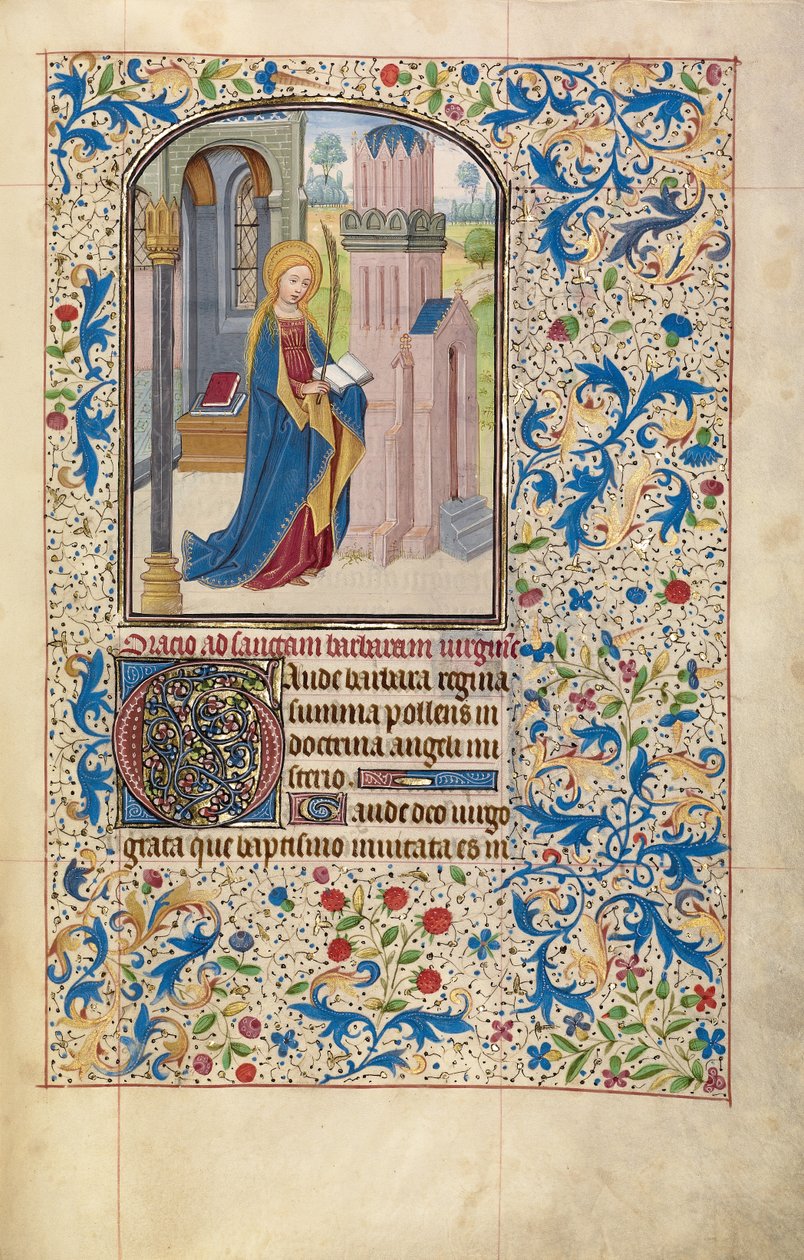 Oracio ad sanctam barbaram uirginē
Gaude barbara regina
summa pollens in
doctrina angeli mi
sterio.
Gaude deo uirgo
grata que baptismo inuitata es in